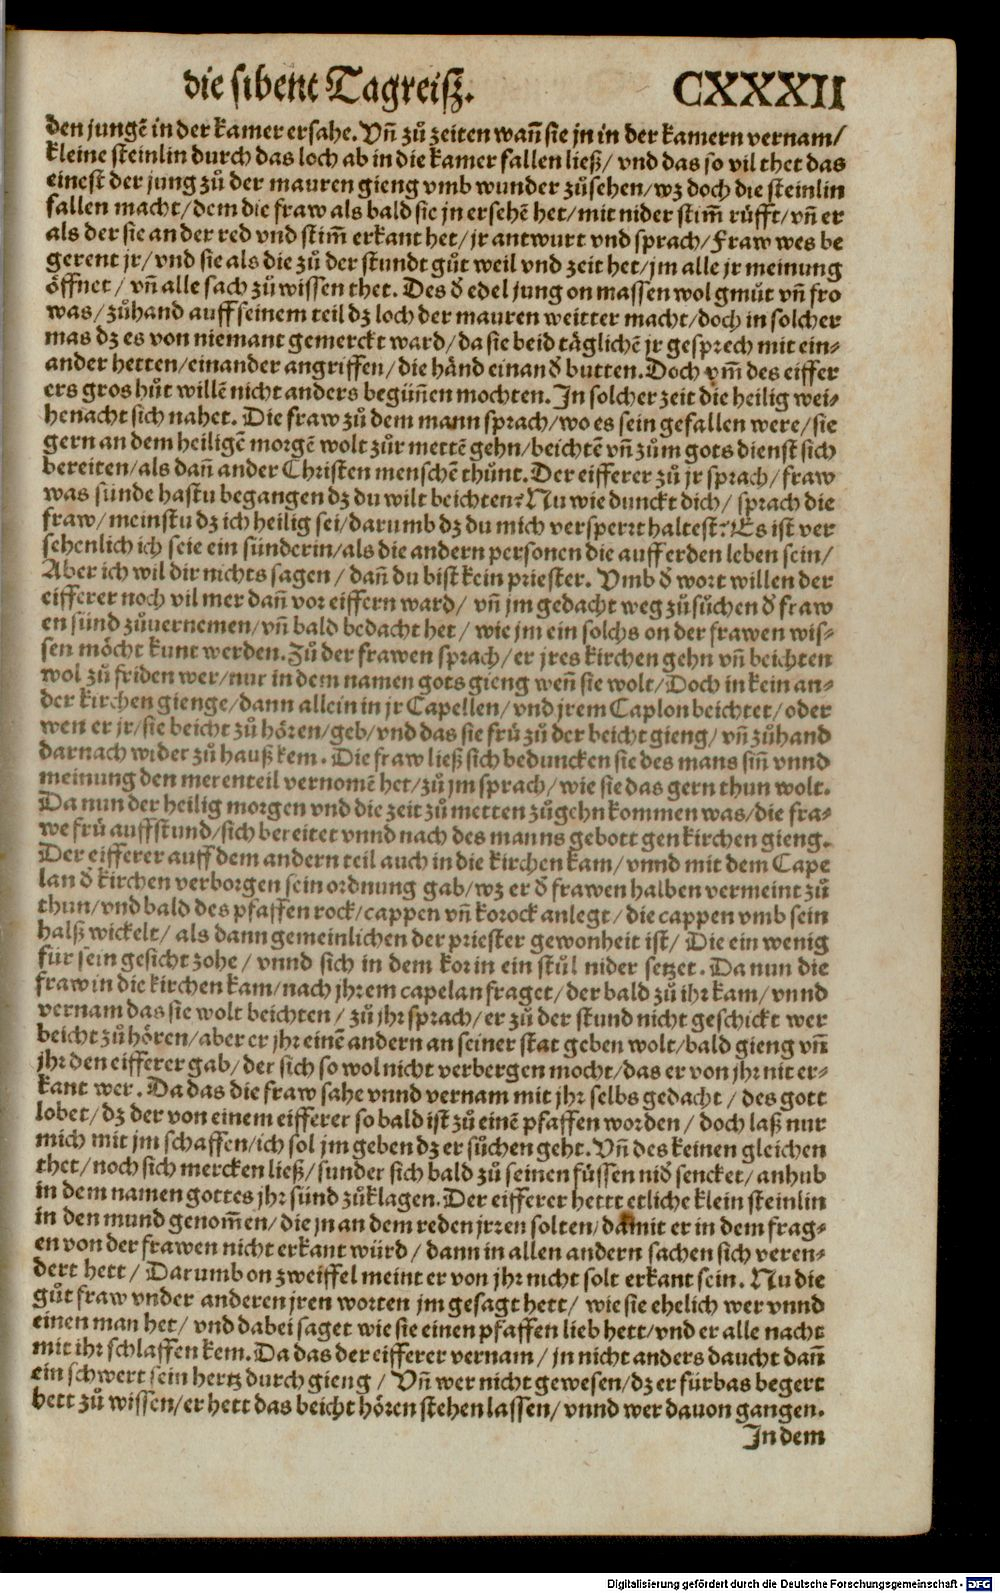 die sibent Tagreisz. CXXXII
den jungẽ in der kamer ersahe. Vñ zů zeiten wañ sie jn in der kamern vernam/
kleine steinlin durch das loch ab in die kamer fallen ließ/ vnd das so vil thet das
einest der jung zů der mauren gieng vmb wunder zůsehen/wz doch die steinlin
fallen macht/dem die fraw als bald sie jn ersehẽ het/mit nider stim̃ růfft/vñ er
als der sie an der red vnd stim̃ erkant het/jr antwurt vnd sprach/Fraw wes be
gerent jr/vnd sie als die zů der stundt gůt weil vnd zeit het/jm alle jr meinung
öffnet/ vñ alle sach zů wissen thet. Des d̄ edel jung on massen wol gmůt vñ fro
was/zůhand auff seinem teil dz loch der mauren weitter macht/doch in solcher
mas dz es von niemant gemerckt ward/da sie beid täglichẽ jr gesprech mit ein⸗
ander hetten/einander angriffen/die händ einand̄ butten. Doch vm̃ des eiffer
ers gros hůt willẽ nicht anders begüñen mochten. In solcher zeit die heilig wei⸗
henacht sich nahet. Die fraw zů dem mann sprach/wo es sein gefallen were/sie
gern an dem heiligẽ morgẽ wolt zůr mettẽ gehn/beichtẽ vñ zům gots dienst sich
bereiten/als dañ ander Christen menschẽ thůnt. Der eifferer zů jr sprach/fraw
was sünde hastu begangen dz du wilt beichten? Nu wie dunckt dich/ sprach die
fraw/meinstu dz ich heilig sei/darumb dz du mich versperrt haltest? Es ist ver
sehenlich ich seie ein sünderin/als die andern personen die auff erden leben sein/
Aber ich wil dir nichts sagen/ dañ du bist kein priester. Vmb d̄ wort willen der
eifferer noch vil mer dañ vor eiffern ward/ vñ jm gedacht weg zůsůchen d̄ fraw
en sünd zůuernemen/vñ bald bedacht het/ wie jm ein solchs on der frawen wis⸗
sen möcht kunt werden. Zů der frawen sprach/er jres kirchen gehn vñ beichten
wol zů friden wer/nur in dem namen gots gieng weñ sie wolt/Doch in kein an⸗
der kirchen gienge/dann allein in jr Capellen/vnd jrem Caplon beichtet/oder
wen er jr/sie beicht zů hören/geb/vnd das sie frü zů der beicht gieng/ vñ zůhand
darnach wider zů hauß kem. Die fraw ließ sich beduncken sie des mans siñ vnnd
meinung den merenteil vernomẽ het/zů jm sprach/wie sie das gern thun wolt.
Da nun der heilig morgen vnd die zeit zů metten zůgehn kommen was/die fra⸗
we frü auffstund/sich bereitet vnnd nach des manns gebott gen kirchen gieng.
Der eifferer auff dem andern teil auch in die kirchen kam/vnnd mit dem Cape
lan d̄ kirchen verborgen sein ordnung gab/wz er d̄ frawen halben vermeint zů
thun/vnd bald des pfaffen rock/cappen vñ korock anlegt/die cappen vmb sein
halß wickelt/ als dann gemeinlichen der priester gewonheit ist/ Die ein wenig
für sein gesicht zohe/ vnnd sich in dem kor in ein stůl nider setzet. Da nun die
fraw in die kirchen kam/nach jhrem capelan fraget/der bald zů ihr kam/vnnd
vernam das sie wolt beichten/ zů jhr sprach/er zů der stund nicht geschickt wer
beicht zů hören/aber er jhr einẽ andern an seiner stat geben wolt/bald gieng vñ
jhr den eifferer gab/der sich so wol nicht verbergen mocht/das er von jhr nit er⸗
kant wer. Da das die fraw sahe vnnd vernam mit jhr selbs gedacht/ des gott
lobet/dz der von einem eifferer so bald ist zů einẽ pfaffen worden/ doch laß nur
mich mit jm schaffen/ich sol jm geben dz er sůchen geht. Vñ des keinen gleichen
thet/noch sich mercken ließ/sunder sich bald zů seinen füssen nid̄ sencket/anhub
in dem namen gottes jhr sünd zůklagen. Der eifferer hettt etliche klein steinlin
in den mund genom̃en/die jn an dem reden jrren solten/damit er in dem frag⸗
en von der frawen nicht erkant würd/ dann in allen andern sachen sich veren⸗
dert hett/ Darumb on zweiffel meint er von jhr nicht solt erkant sein. Nu die
gůt fraw vnder anderen jren worten jm gesagt hett/ wie sie ehelich wer vnnd
einen man het/ vnd dabei saget wie sie einen pfaffen lieb hett/vnd er alle nacht
mit ihr schlaffen kem. Da das der eifferer vernam/ jn nicht anders daucht dañ
ein schwert sein hertz durch gieng/ Vñ wer nicht gewesen/dz er fürbas begert
hett zů wissen/er hett das beicht hören stehen lassen/vnnd wer dauon gangen.
In dem
Digitalisierung gefördert durch die Deutsche Forschungsgemeinschaft - DFG